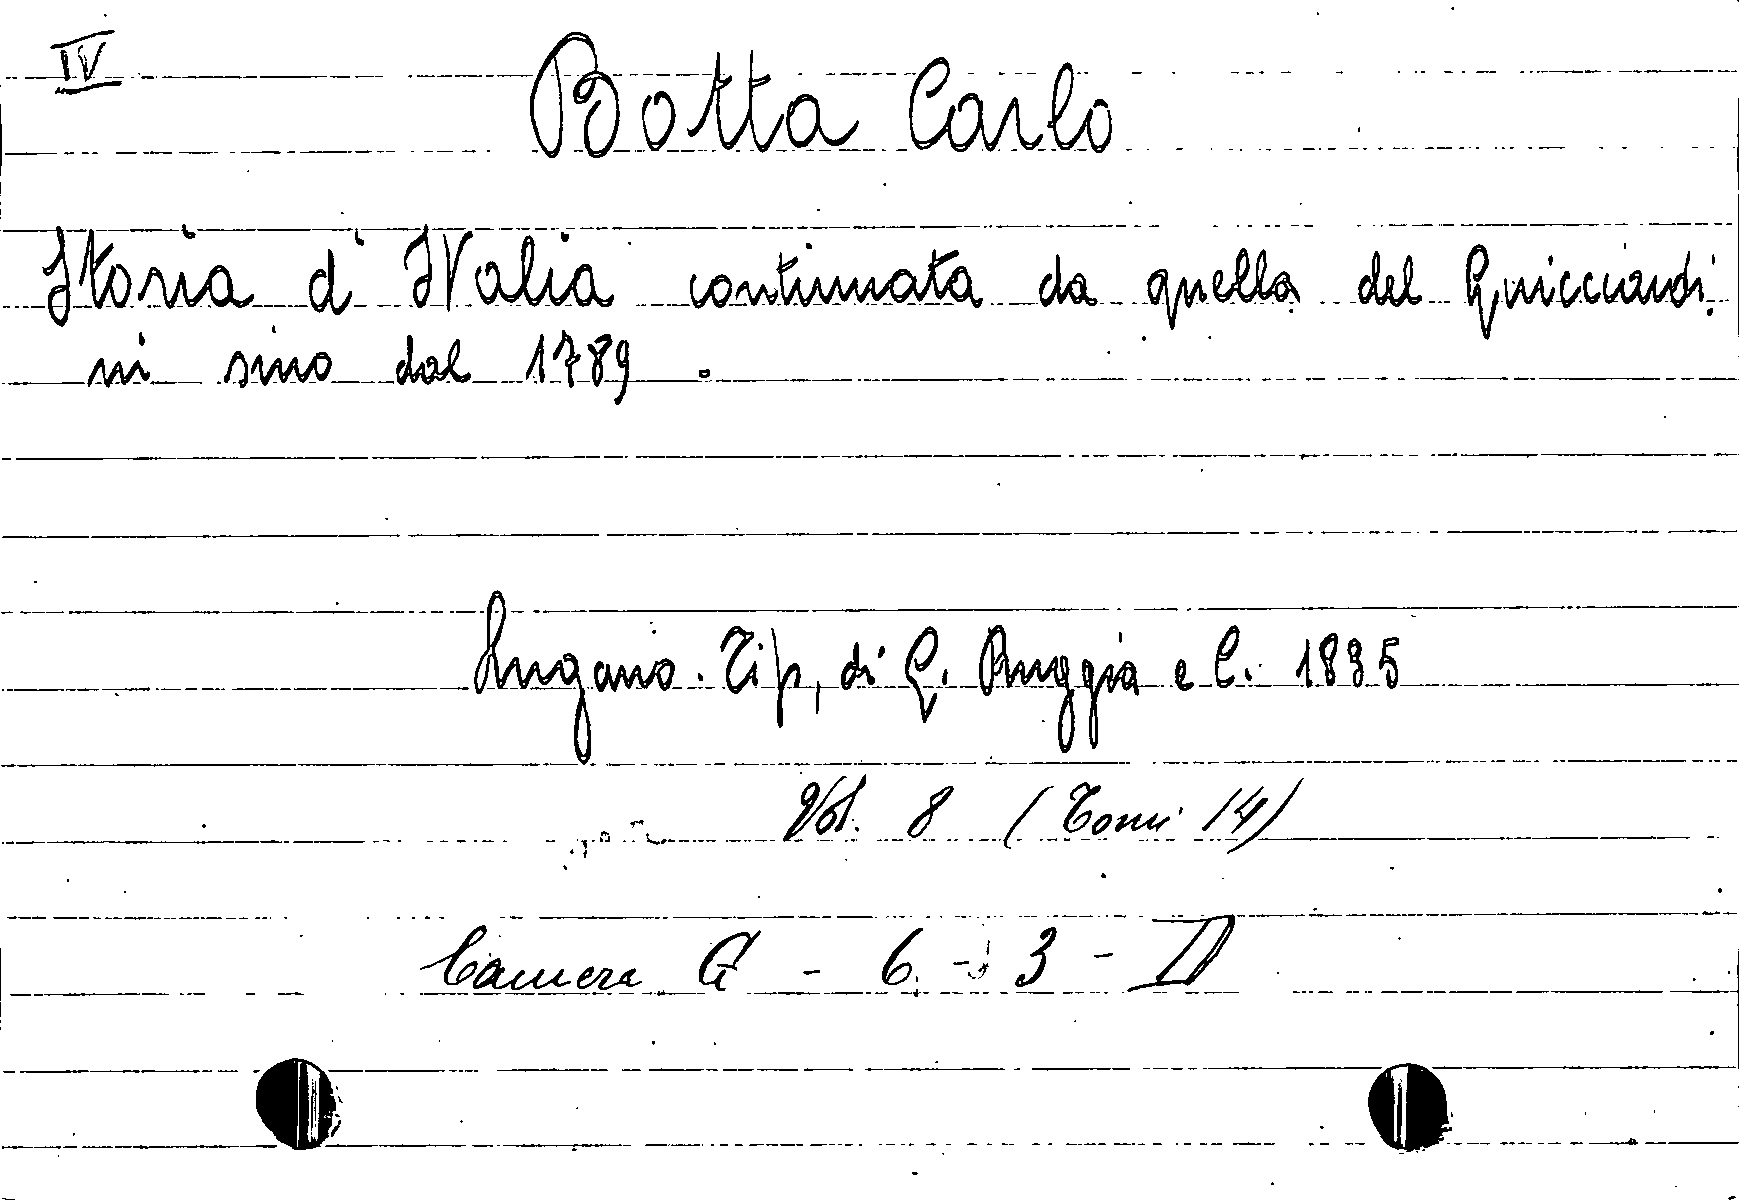 IV
Botta Carlo
Storia d'Italia continuata da quella del Guicciardi
ni sino dal 1789.
Lugano. Tip, di G. Ruggia e C. 1835
Vol. 8 (Tomi 14)
Camera G - 6 - 3 - D